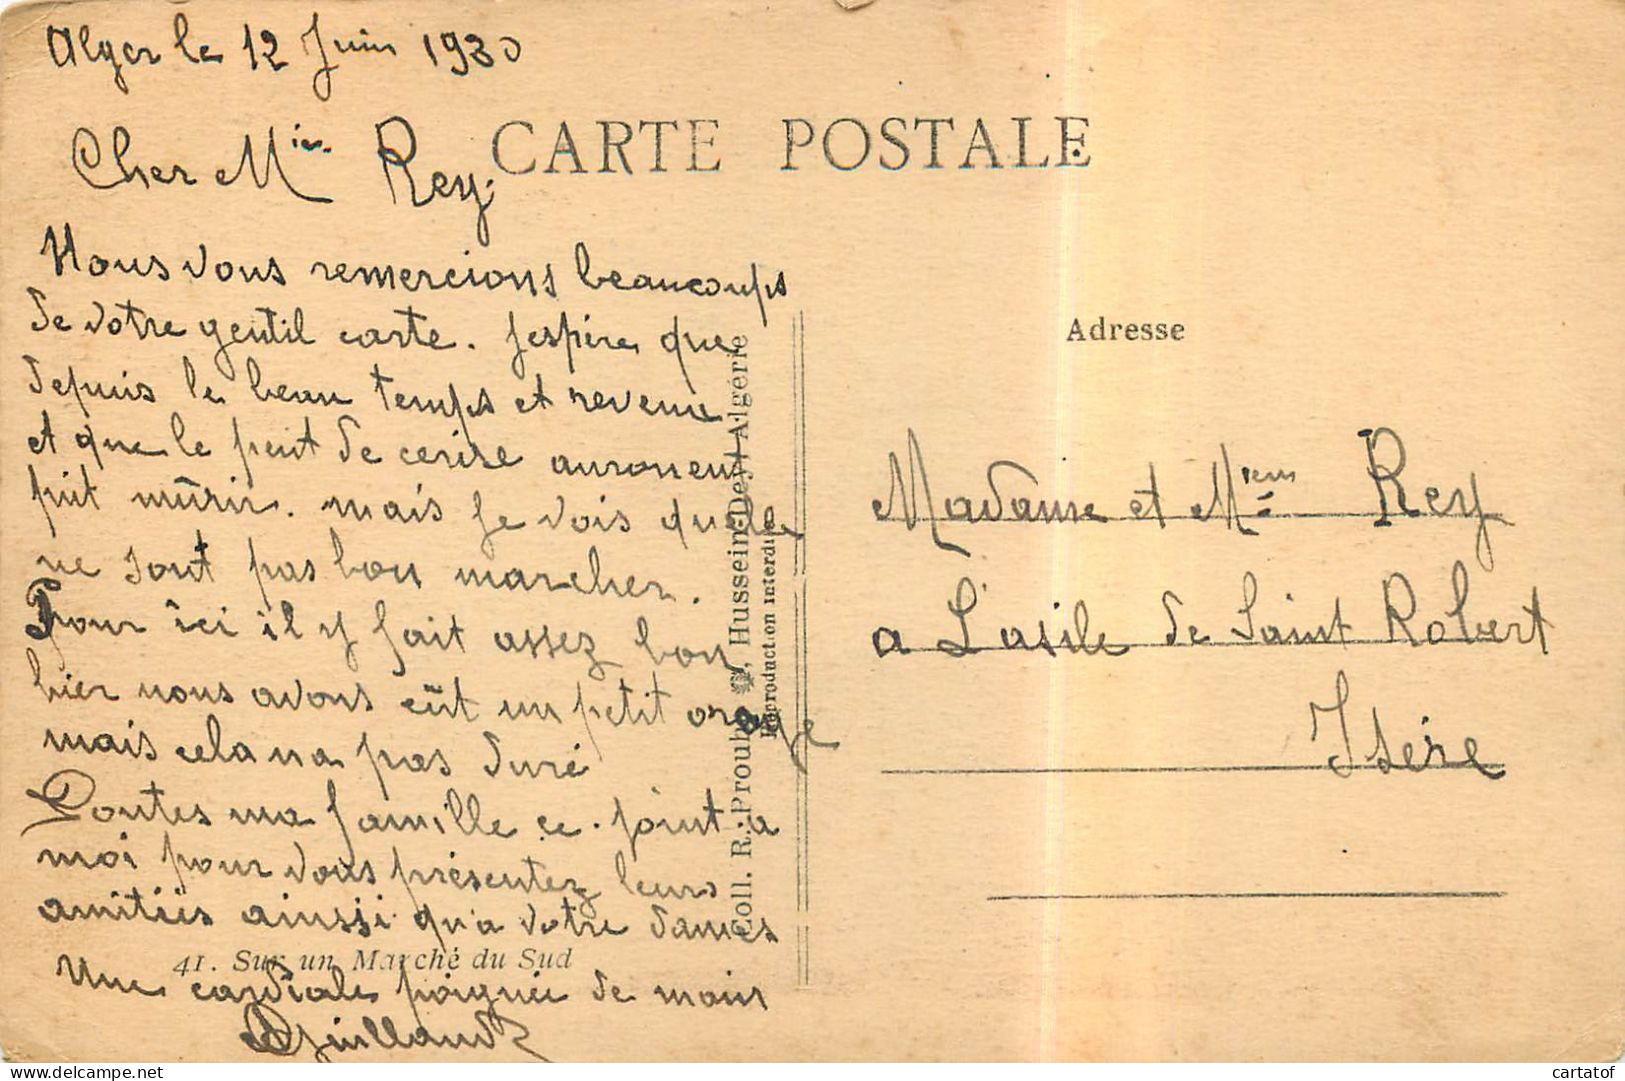 Alger le 12 Juin 1930
CARTE POSTALE
Cher Mier Rey.
Nous vous remercions beaucoups
de votre gentil carte. Jespère que
depuis le beau temps et revenu
et que le peut de cerise auronent
put mûrir. mais je vois quelle
ne sont pas bon marcher.
Pour ici il y fait assez bon
hier nous avons eût un petit orage
mais cela na pas duré
Toutes ma famille ce joint a
moi pour vous présentez leurs
amitiés ainssi qu'a votre dames
41. Sur un Marché du Sud
Une cardiale poignée de main
Guillaud
Coll. R. Prouho, Hussein-Dey, Algérie
Reproduction interdite
Adresse
Madame et Mr Rey
a L'asile de Saint Robert
Isère
cartatof